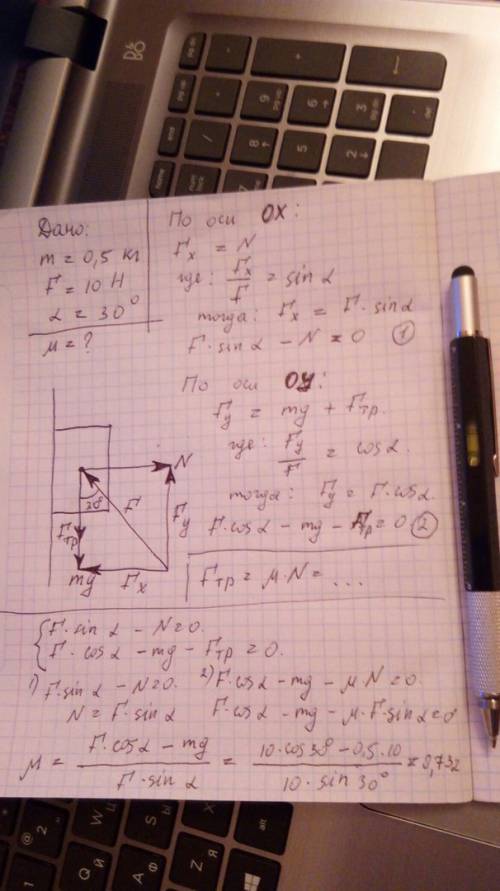 Дано:
m = 0,5 кг
F = 10 Н
α = 30°
μ = ?
По оси OX:
Fx = N
где: Fx/F = sinα
тогда: Fx = F·sinα
F·sinα − N = 0 (1)
По оси OY:
Fy = mg + Fтр.
где: Fy/F = cosα.
тогда: Fy = F·cosα.
F·cosα − mg − Fтр = 0 (2)
N
F
30°
Fтр
Fy
mg
Fx
Fтр = μ·N = ...
{F·sinα − N = 0.
F·cosα − mg − Fтр = 0.
1) F·sinα − N = 0. 2) F·cosα − mg − μ·N = 0.
N = F·sinα F·cosα − mg − μ·F·sinα = 0
μ = F·cosα − mg / F·sinα = 10·cos30° − 0,5·10 / 10·sin30° = 0,732